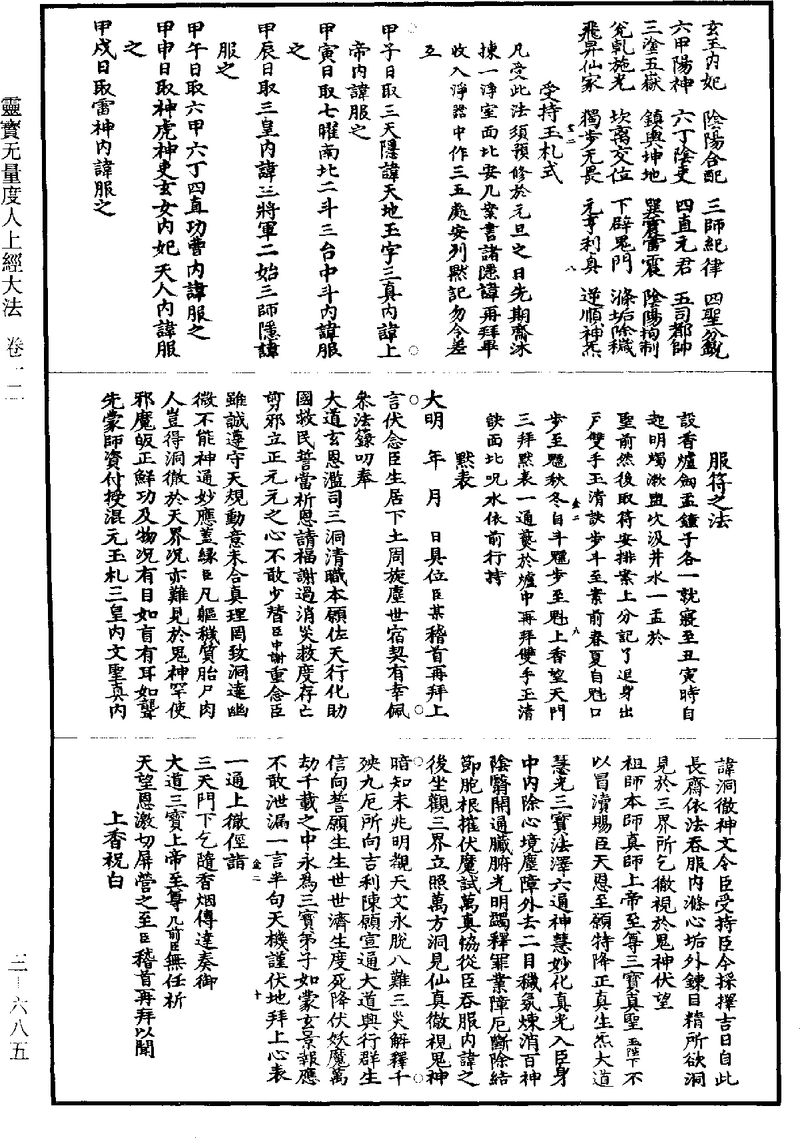 玄玉內妃　陰陽合配　三師紀律　四聖分覩
六甲陽神　六丁陰吏　四直元君　五司都帥
三塗五嶽　鎮輿坤地　巽震雷震　陰陽拘制
兊乾施光　坎离交位　下辟鬼門　滌垢除穢
飛昇仙家　獨步无畏　元亨利貞　逆順神炁
受持玉札式
凡受此法須預修於元旦之日先期齋沐
揀一淨室面北安几案書諸隱諱再拜畢
收入淨器中作三五處安列默記勿令差
互
甲子日取三天隱諱天地玉字三真內諱上
帝內諱服之
甲寅日取七曜南北二斗三台中斗內諱服
之
甲辰日取三皇內諱三將軍二始三師隱諱
服之
甲午日取六甲六丁四直功曹內諱服之
甲申日取神虎神吏玄女內妃天人內諱服
之
甲戌日取雷神內諱服之
靈寶无量度人上經大法　卷一二
服符之法
設香爐劒盂鐘子各一就寢至丑寅時自
起明燭漱盥坎汲井水一盂於
聖前然後取符安排案上分記了退身出
戶雙手玉清訣步斗至案前春夏自魁口
步至魒秋冬自斗魒步至魁上香望天門
三拜默表一通爇於爐中再拜雙手玉清
訣面北呪水依前行持
默表
大明　年　月　日具位臣某稽首再拜上
言伏念臣生居下土周旋塵世宿契有幸佩
叅法籙叨奉
大道玄恩濫司三洞清職本願佐天行化助
國救民誓當祈恩請福謝過消災救度存亡
剪邪立正元元之心不敢少替臣中謝重念臣
雖誠遵守天規動意未合真理罔致洞達幽
微不能神通妙應蓋緣臣凡軀穢質胎尸肉
人豈得洞徹於天界況亦難見於鬼神罕使
邪魔皈正鮮功及物況有目如盲有耳如聾
先蒙師資付授混元玉札三皇內文靈真內
諱洞徹神文令臣受持臣今採擇吉日自此
長齋依法吞服內滌心垢外鍊目精所欲洞
見於三界所乞徹視於鬼神伏望
祖師本師真師上帝至尊三寶真聖 陛下不
以冒瀆賜臣天恩至願特降正真生炁大道
慧光三寶法澤六通神慧妙化真光入臣身
中內除心境塵障外去二目穢氛煉消百神
陰翳開通臟腑光明蠲釋罪業障厄斷除結
節胞根摧伏魔試萬真恊從臣吞服內諱之
後坐觀三界立照萬方洞見仙真徹視鬼神
暗知未兆明觀天文永脫八難三災解釋千
殃九厄所向吉利陳願宣通大道興行群生
信向誓願生生世世濟生度死降伏妖魔萬
劫千載之中永爲三寶弟子如蒙玄景報應
不敢泄漏一言半句天機謹伏地拜上心表
一通上徹徑詣
三天門下乞隨香烟傳達奏御
大道三寶上帝至尊几前臣無任祈
天望恩激切屏營之至臣稽首再拜以聞
上香祝白
三—六八五